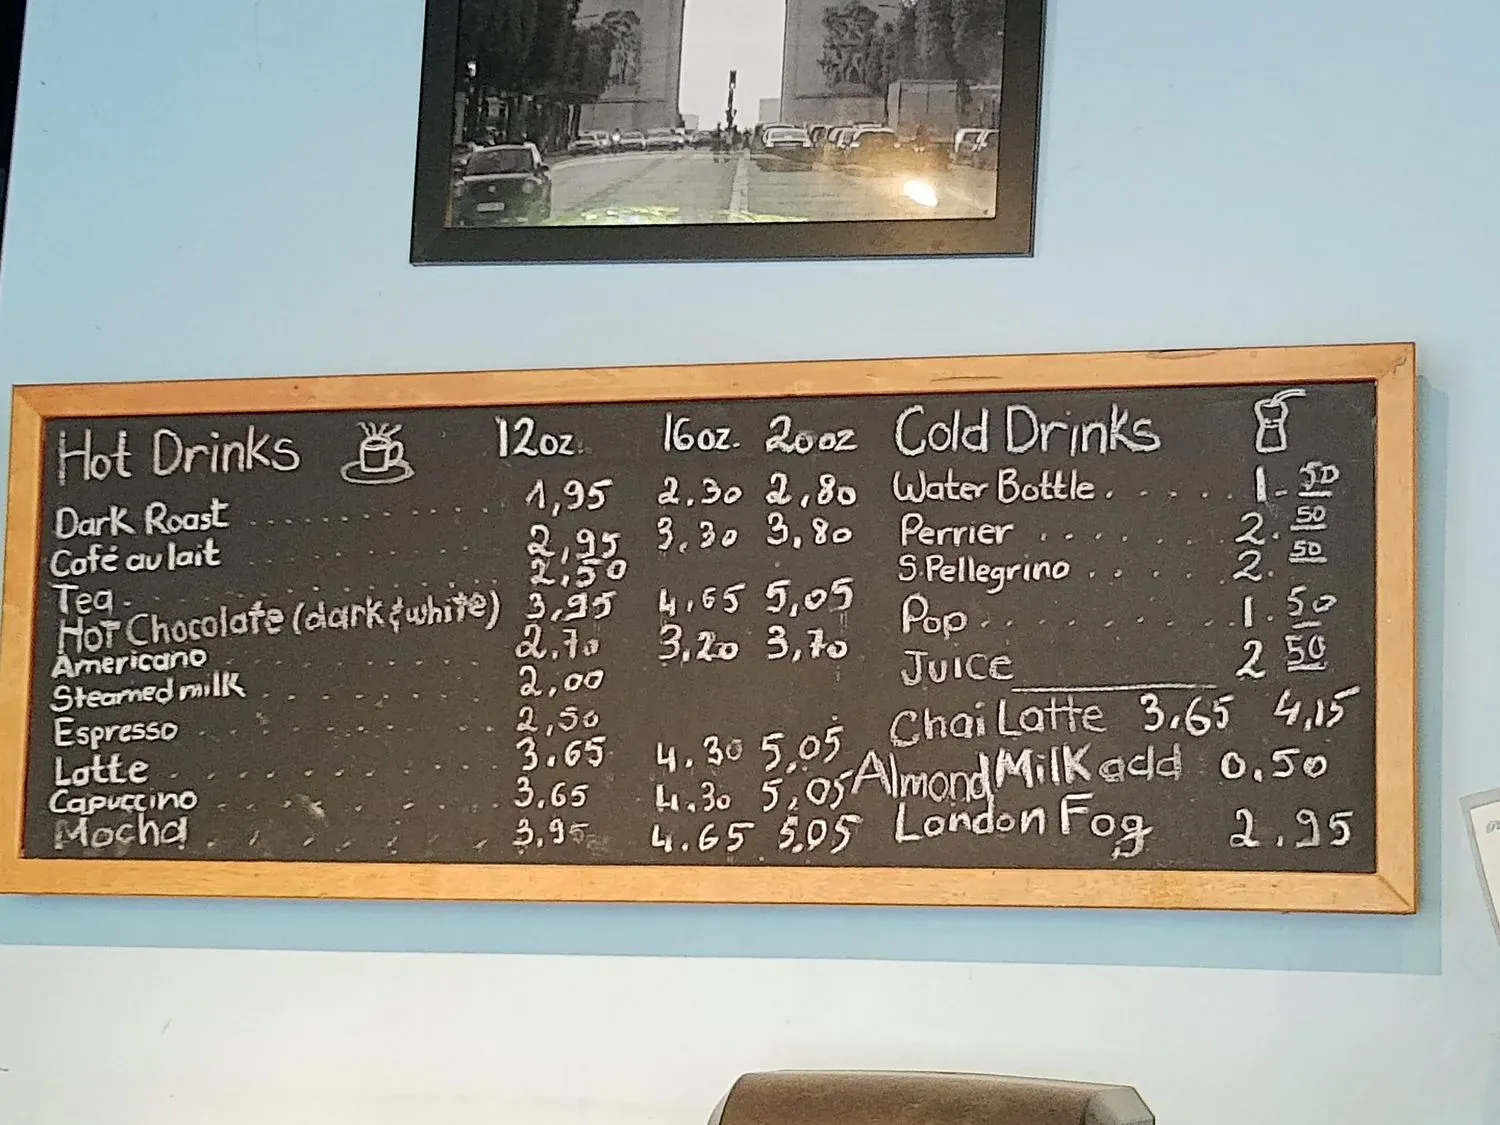 Hot Drinks 12oz. 16oz. 20oz
Dark Roast .................. 1,95 2.30 2,80
Café au lait .................. 2,95 3.30 3,80
Tea .................. 2.50
Hot Chocolate (dark & white) 3,95 4,65 5,05
Americano .................. 2.70 3,20 3,70
Steamed milk .................. 2,00
Espresso .................. 2,50
Latte .................. 3.65 4.30 5,05
Capuccino .................. 3,65 4.30 5,05
Mocha .................. 3,95 4.65 5,05
Cold Drinks
Water Bottle ....... 1.50
Perrier ....... 2.50
S.Pellegrino ....... 2.50
Pop ....... 1.50
Juice 2 50
Chai Latte 3,65 4,15
Almond Milk add 0.50
London Fog 2.95